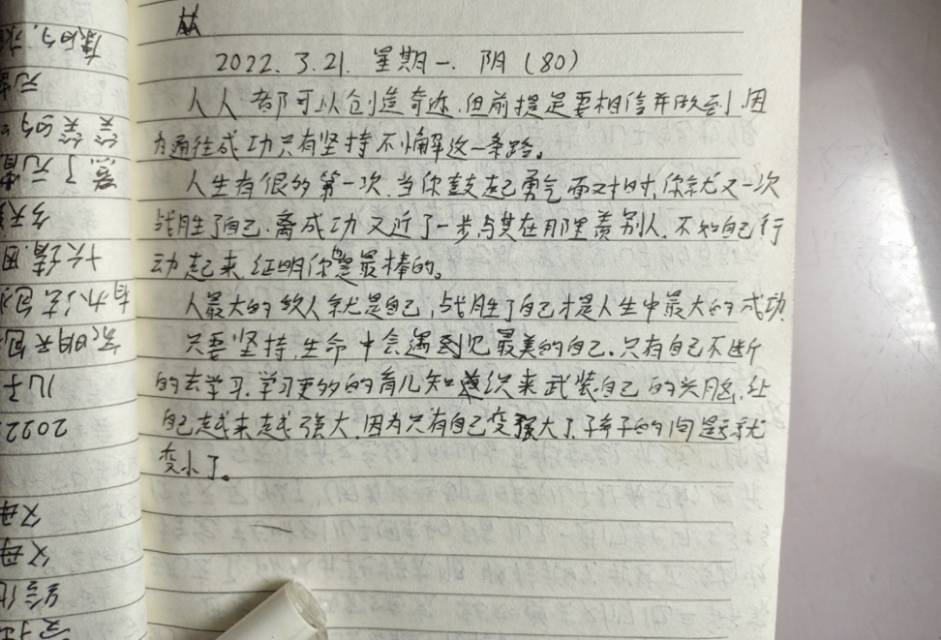 2022.3.21. 星期一. 阴(80)
人人都可以创造奇迹.但前提是要相信并做到因
为通往成功只有坚持不懈这一条路。
人生有很的第一次.当你鼓起勇气面对时,你就又一次
战胜了自己.离成功又近了一步与其在那里羡别人.不如自己行
动起来证明你是最棒的。
人最大的敌人就是自己,战胜了自己才是人生中最大的成功.
只要坚持,生命中会遇到见最美的自己.只有自己不断
的去学习.学习更多的育儿知识来武装自己的头脑.让
自己越来越强大.因为只有自己变强大了.孩子的问题就
变小了。
2022
儿子
父母
父母